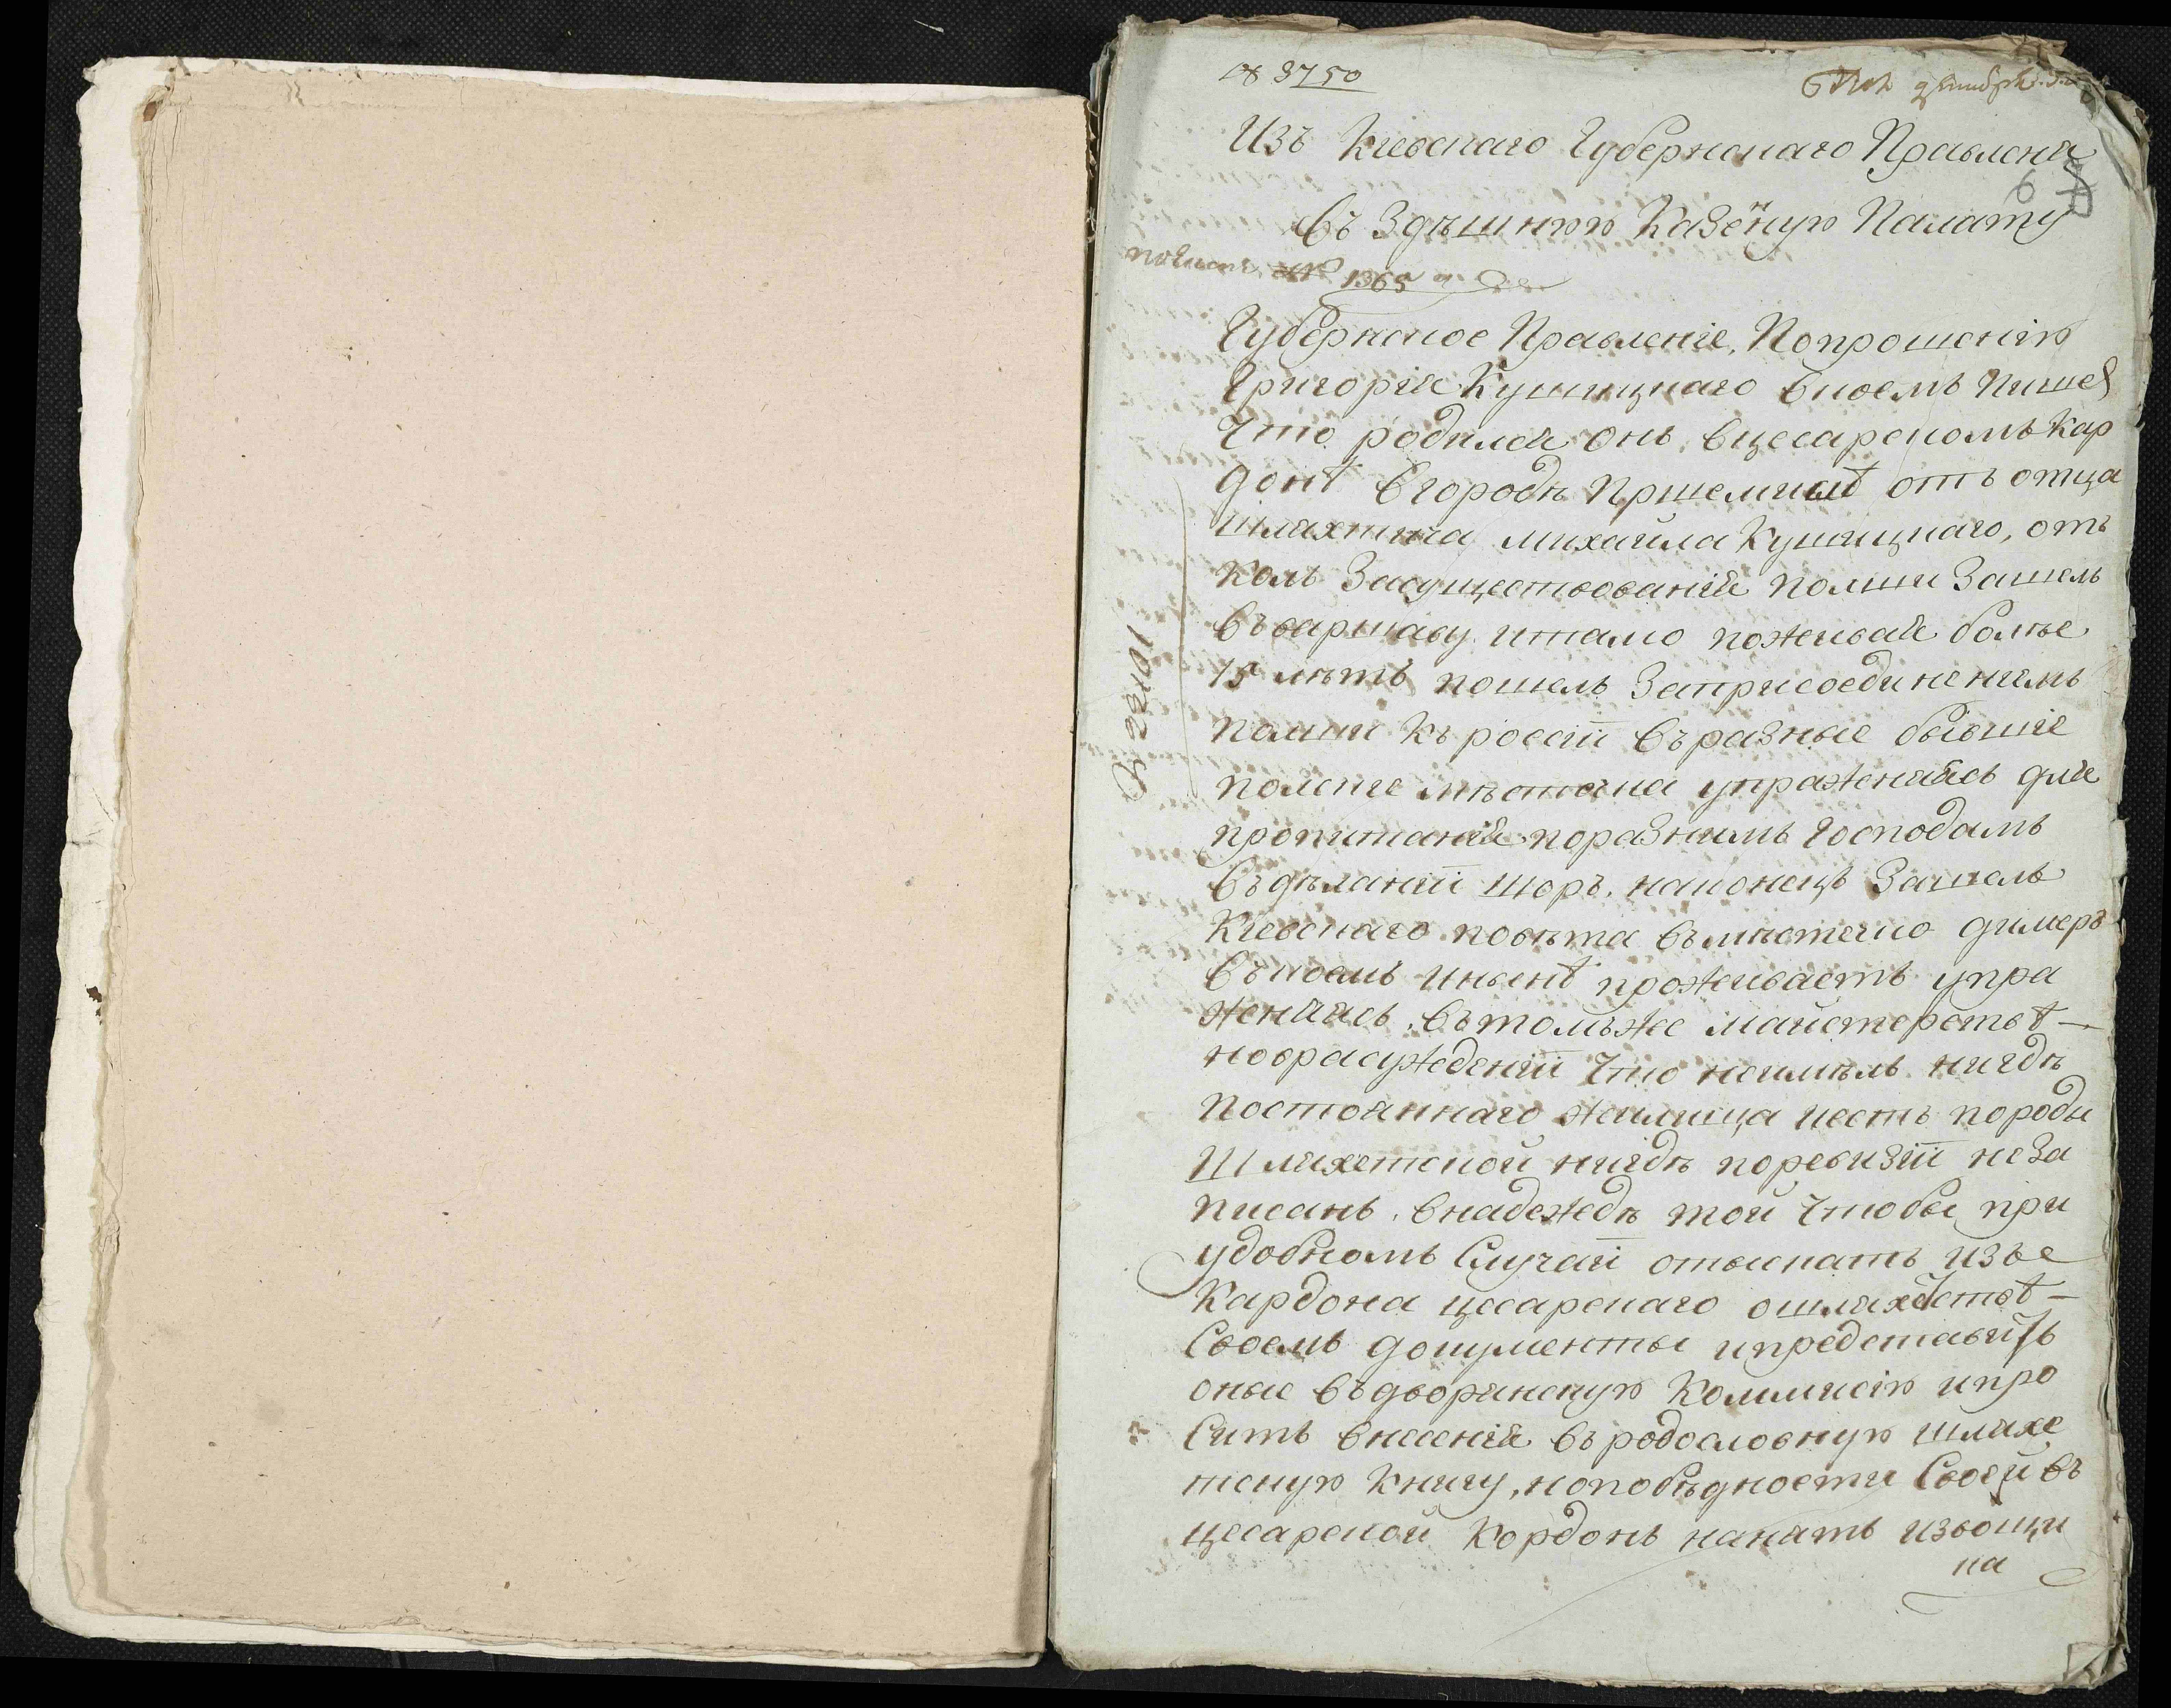 № 3750
Изъ Киевскаго Губернскаго Правления
6
въ Здѣшнюю Казенную Палату
№ 1365
Губернское Правление, Попрошению
Григория Кушицкаго вкоемъ Пишеъ
Что родился онъ вцесарскомъ Кар
донѣ вгородѣ Пршемислѣ отъ отца
шляхтича михайла Кушицкаго, отъ
коль Засуществования полши Зашелъ
въваршаву итамо поживая болѣе
15 лѣтъ пошелъ Заприсоединениемъ
полши къ росіи въразные бывшіе
полские мѣстечка упражняясь для
пропитания поразнимъ господамъ
въдѣлании шоръ, наконецъ Зашелъ
Киевскаго повѣта въмѣстечко димеръ
въкоемъ инынѣ проживаетъ упра
жняясь, вътомъже майстерствѣ —
новразсуждении Что неимѣлъ нигдѣ
постояннаго жилища иесть породы
Шляхетской нигдѣ поревизіи неза
писанъ, внадеждѣ той Чтобы при
удобномъ Случаи отыскать изъе
Кардона цесарскаго ошляхетствѣ —
Своемъ документы ипредставить
оные въдворянскую Коммисію ипро
Сить внесения въродословную шляхе
тскую книгу, нопобѣдности Своей въ
цесарской Кордонъ нанять извощи
ка